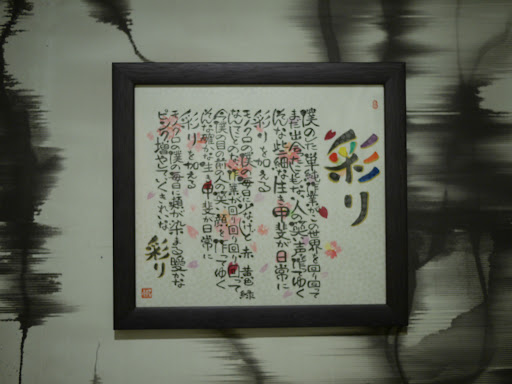 彩り
僕のした単純作業がこの世界を回り回って
まだ出会ったこともない人の笑い声を作ってゆく
そんな些細な生き甲斐が日常に
彩りを加える
モノクロの僕の毎日に少ないけど 赤 黄 緑
なんてことのない作業が回り回り回り回って
今僕の目の前の人の笑い顔を作ってゆく
そんな確かな生き甲斐が日常に
彩りを加える
モノクロの僕の毎日に頬が染まる暖かな
ピンク増やしていくきれいな
彩り